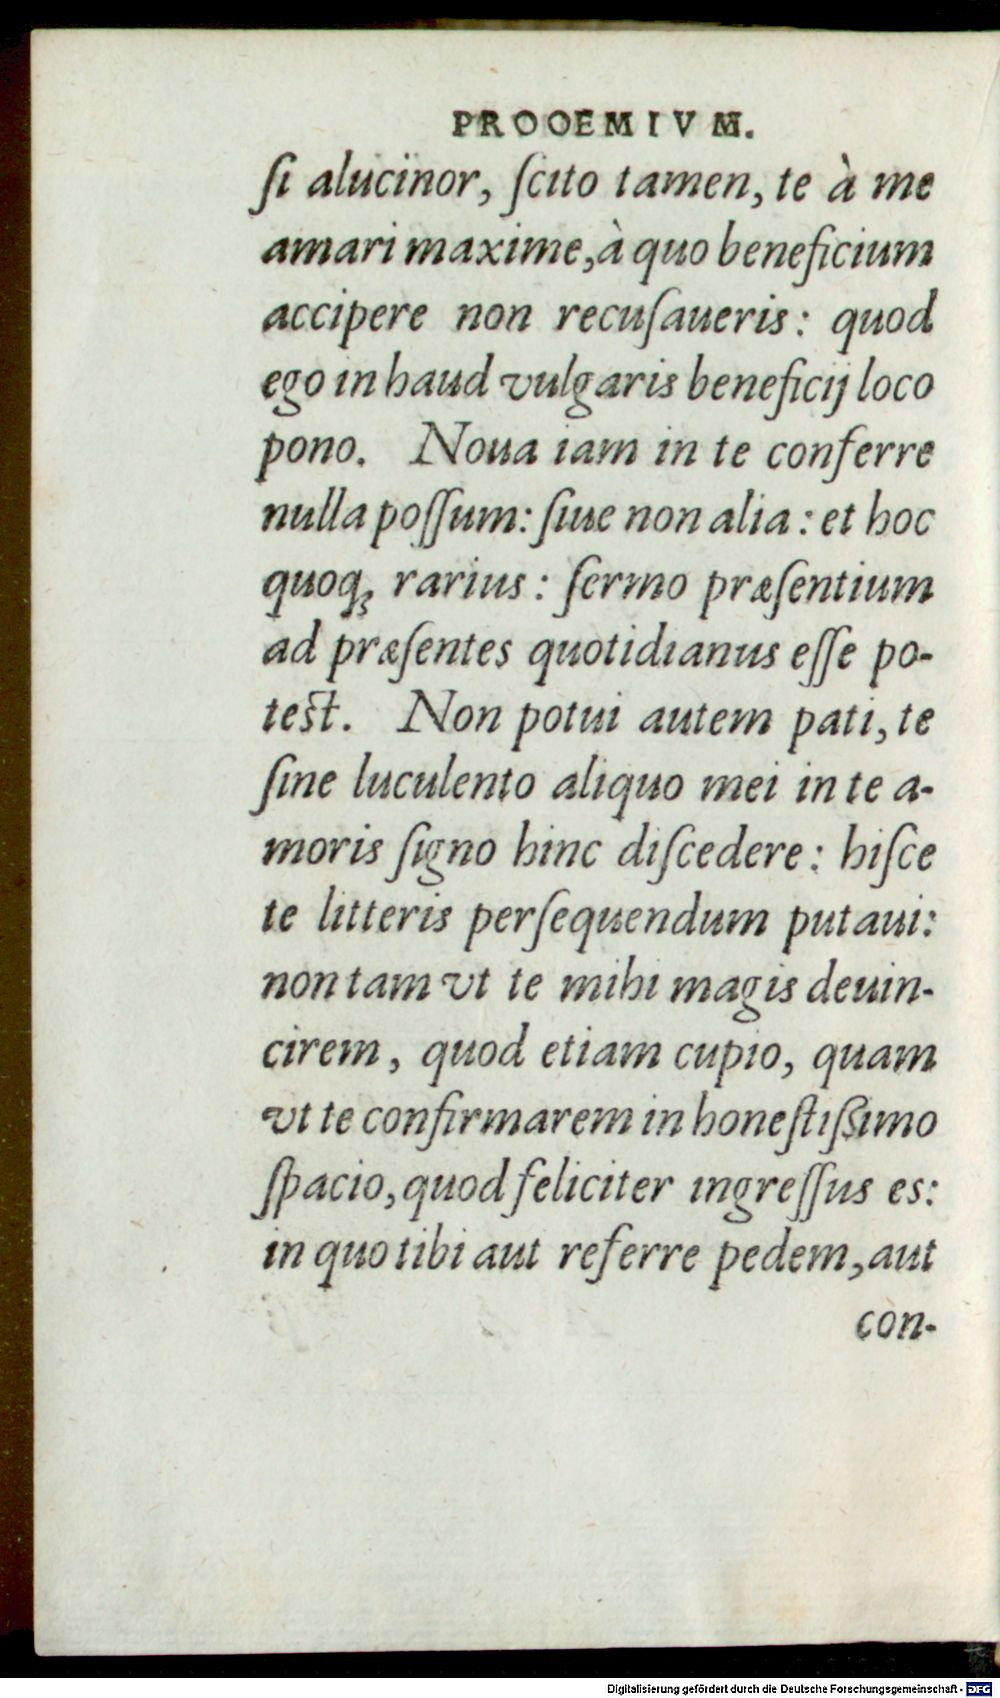 PROOEMIVM.
ſi alucinor, ſcito tamen, te à me
amari maxime, à quo beneficium
accipere non recuſaueris: quod
ego in haud vulgaris beneficij loco
pono. Noua iam in te conferre
nulla poſſum: ſiue non alia: et hoc
quoq; rarius: ſermo præſentium
ad præſentes quotidianus eſſe po-
teſt. Non potui autem pati, te
ſine luculento aliquo mei in te a-
moris ſigno hinc diſcedere: hiſce
te litteris perſequendum putaui:
non tam vt te mihi magis deuin-
cirem, quod etiam cupio, quam
vt te confirmarem in honeſtiſsimo
ſpacio, quod feliciter ingreſſus es:
in quo tibi aut referre pedem, aut
con-
Digitalisierung gefördert durch die Deutsche Forschungsgemeinschaft - DFG